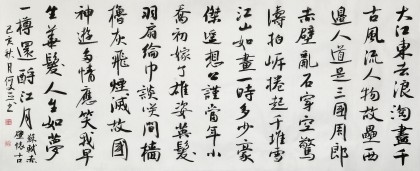 大江東去浪淘盡千
古風流人物故壘西
邊人道是三國周郎
赤壁亂石穿空驚
濤拍岸捲起千堆雪
江山如畫一時多少豪
傑遥想公謹當年小
喬初嫁了雄姿英發
羽扇綸巾談笑間檣
櫓灰飛煙滅故國
神遊多情應笑我早
生華髮人生如夢
一樽還酹江月
蘇軾赤
壁懷古
己亥秋月